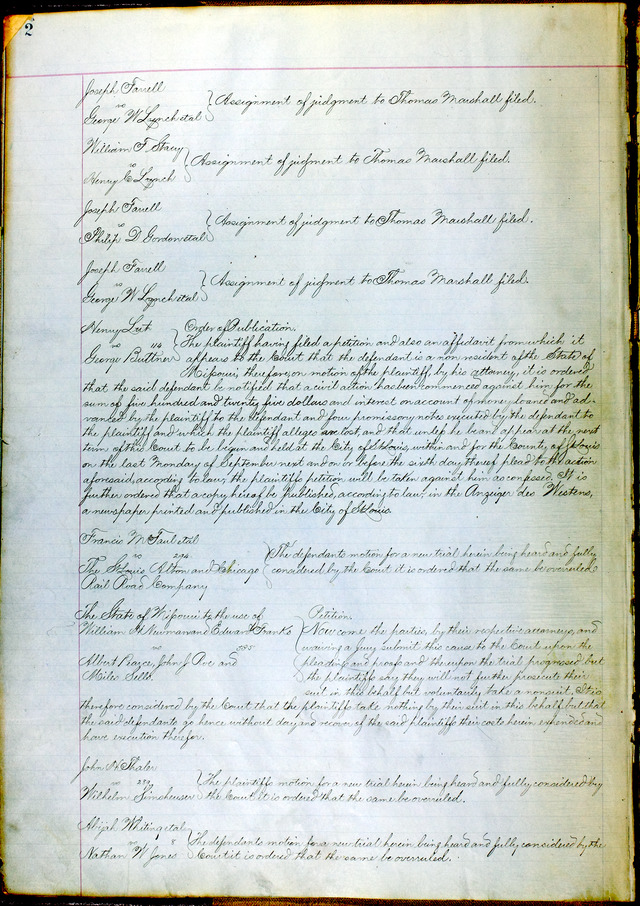 2
Joseph Farrell
vs
George W Lynch etal
Assignment of judgment to Thomas Marshall filed.
William F. Stacy
vs
Henry C Lynch
Assignment of judgment to Thomas Marshall filed.
Joseph Farrell
vs
Philip D Gordon etal
Assignment of judgment to Thomas Marshall filed.
Joseph Farrell
vs
George W Lynch etal
Assignment of judgment to Thomas Marshall filed.
Henry
vs 114
George Buttner
Order of Publication.
The plaintiff having filed a petition and also an affidavit from which it
appears to the Court that the defendant is a non resident of the State of
Missouri, therefore, on motion of the plaintiff, by his attorney, it is ordered
that the said defendant be notified that a civil action has been commenced against him for the
sum of five hundred and twenty five dollars and interest on account of money loaned and ad-
vanced by the plaintiff to the defendant and four promissory notes executed by the defendant to
the plaintiff and which the plaintiff alleges are lost, and that unless he be and appear at the next
term of the Court to be begun and held at the City of St Louis, within and for the County of St Louis
on the last Monday of September next and on or before the sixth day thereof plead to the action
aforesaid, according to law, the plaintiffs petition will be taken against him as confessed. It is
further ordered that a copy hereof be Published, according to law, in the Anzeiger des Westens,
a newspaper printed and published in the City of St Louis.
Francis M. etal
vs 294
The St Louis Alton and Chicago
Rail Road Company
The defendants motion for a new trial herein being heard and fully
considered by the Court it is ordered that the same be overruled.
The State of Missouri to the use of
William H Newman and Edward Franks
vs
Albert John J. and
Miles Sells.
Petition.
Now come the parties, by their respective attorneys, and
waiving a Jury submit this cause to the Court upon the
pleadings and proofs and the upon the trial progressed but
the plaintiffs say they will not further prosecute their
suit in this behalf but voluntarily take a nonsuit. It is
therefore considered by the Court that the plaintiffs take nothing by their suit in this behalf but that
the said defendants go hence without day and recover of the said plaintiffs their costs herein expended and
have execution therefor.
John H. Thaler
vs
Wilhelm Simshauser
The plaintiffs motion for a new trial herein being heard and fully considered by
the Court it is ordered that the same be overruled.
Abijah Whiting etal
vs 8
Nathan W Jones
The defendants motion for a new trial herein being heard and fully considered by the
Court it is ordered that the same be overruled.